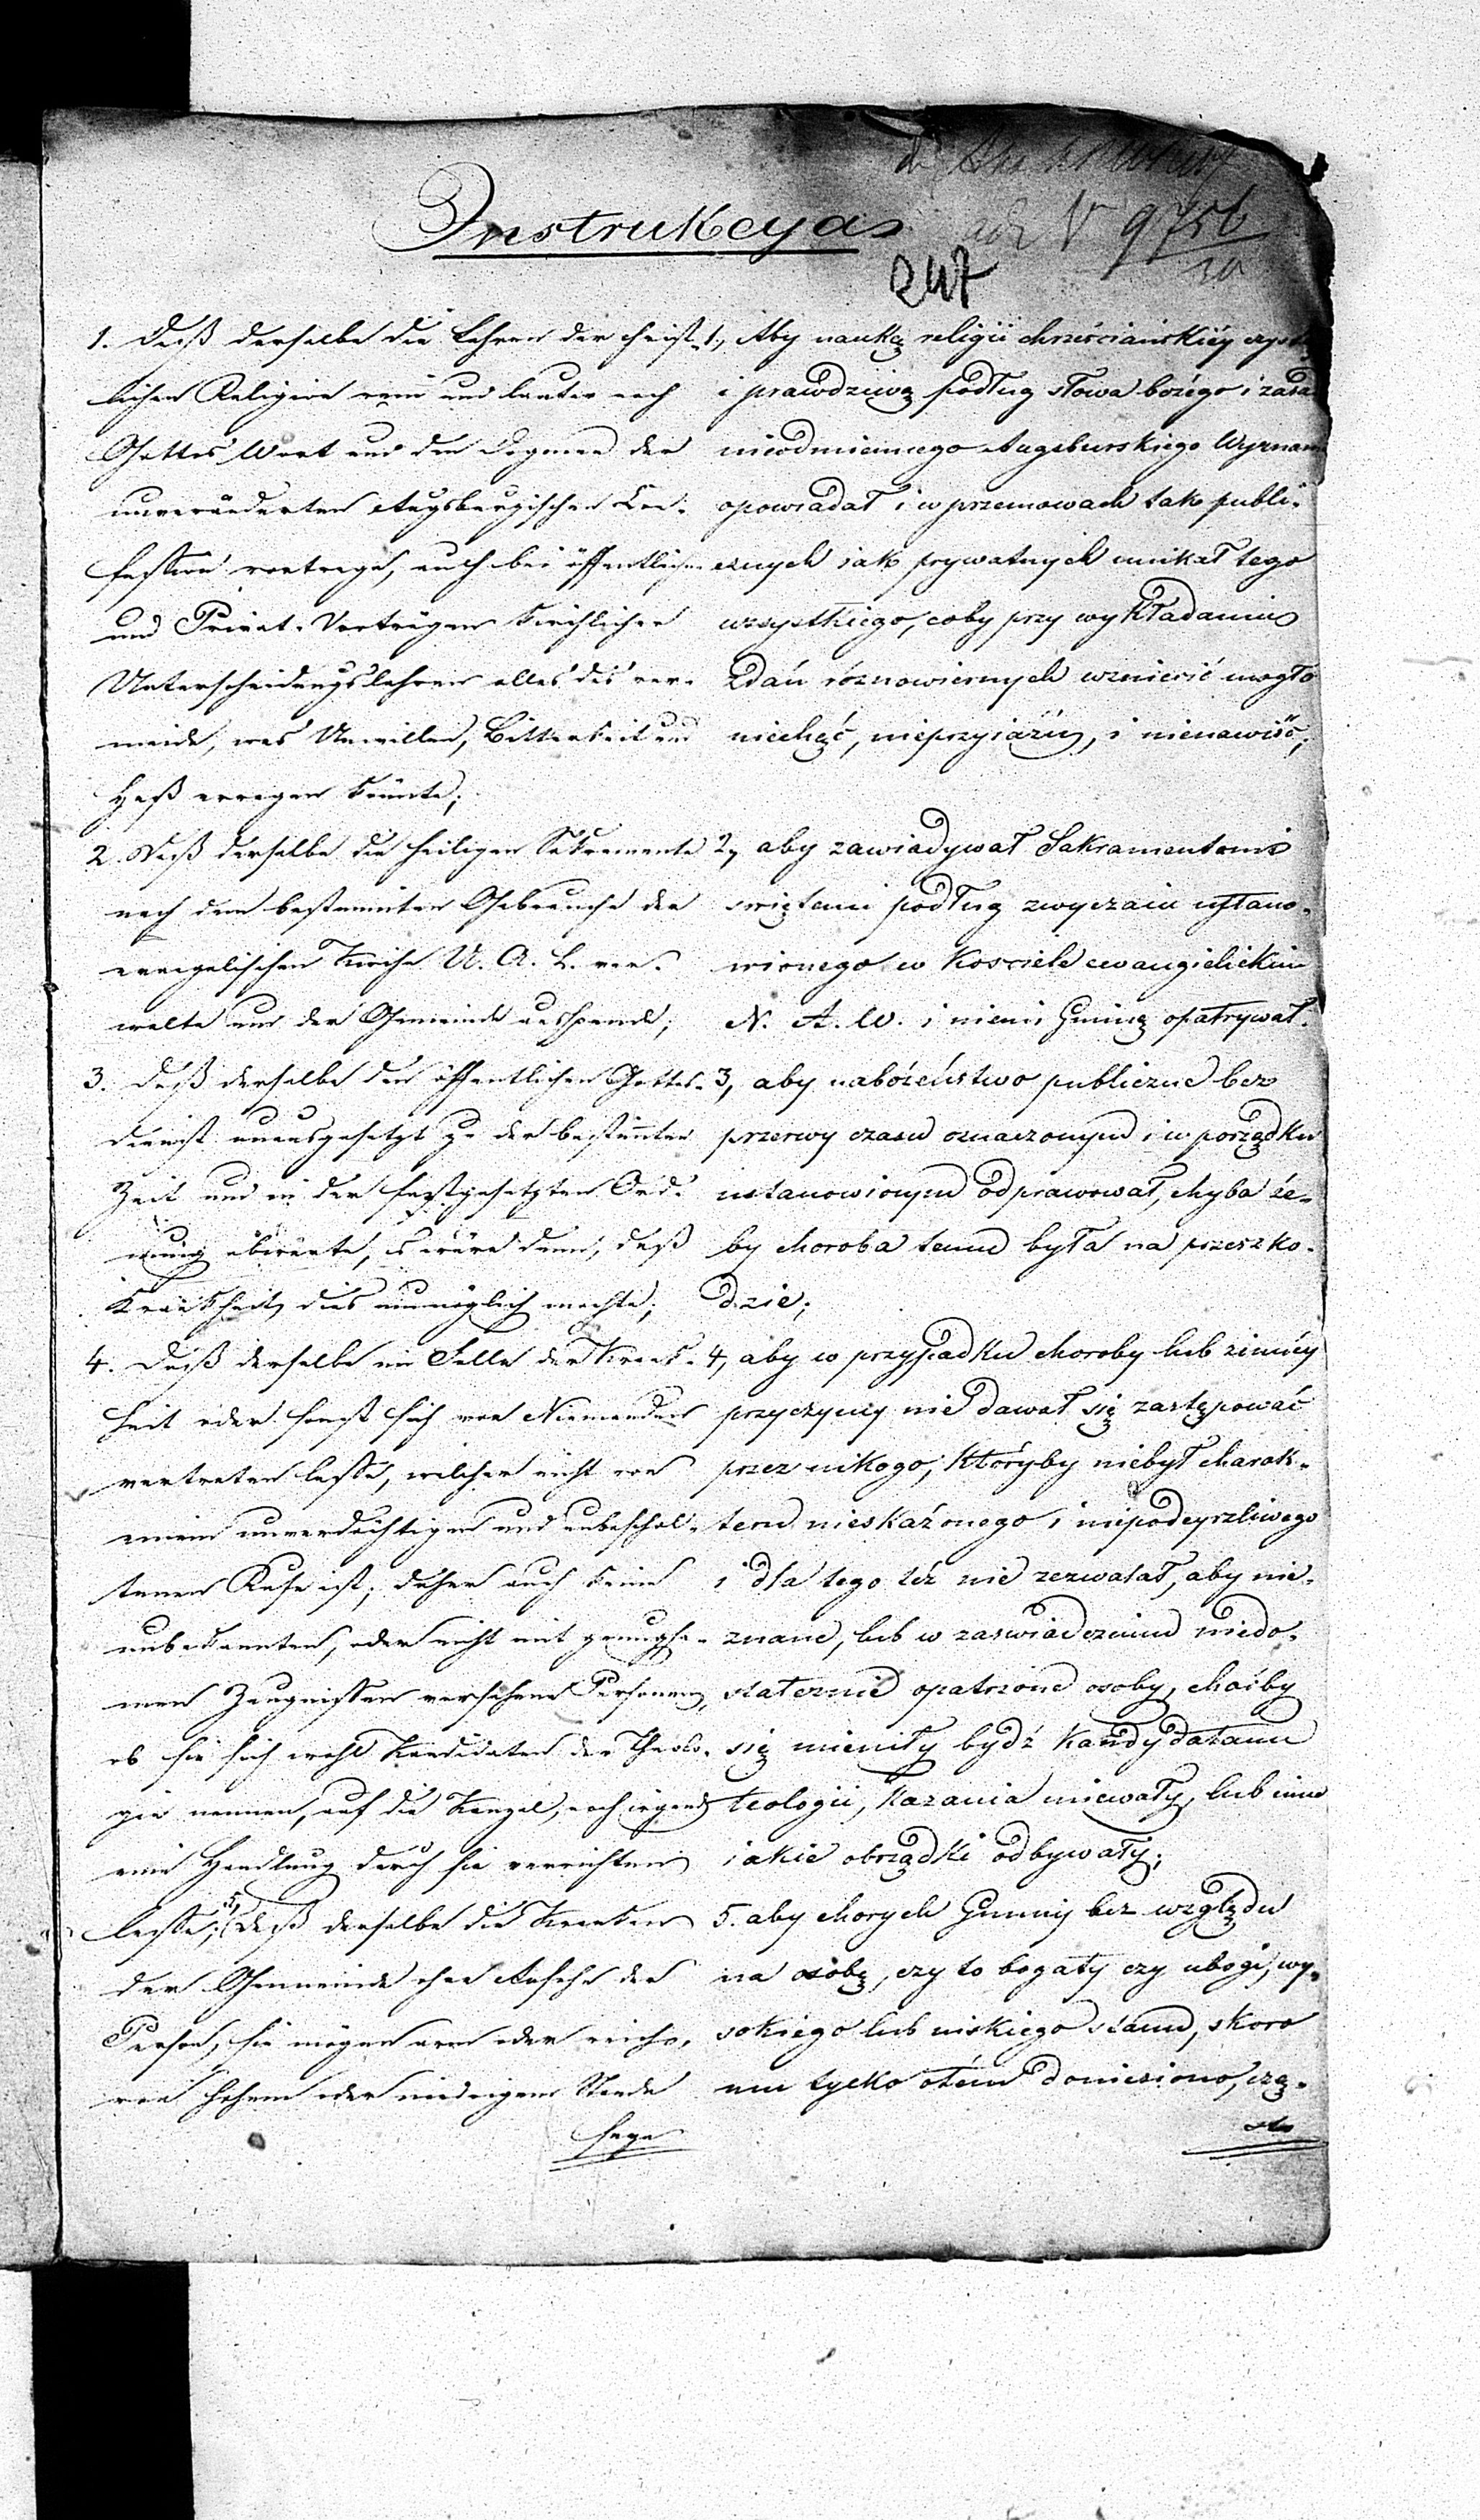 Instrukcya
ad N 9756
247
1. Daß derselbe die Lehren der christ-
lichen Religion rein und lauter nach
Gottes Wort und den Dogmen der
unveränderten Augsburgischen Con-
fession vortrage, auch bei öffentlichen
und Privat-Vorträgen kirchlicher
Unterscheidungslehren alles das ver-
meide, was Unwillen, Bitterkeit und
Haß erregen könnte;
2. Daß derselbe die heiligen Sakramente
nach dem bestimmten Gebrauche der
evangelischen Kirche U. A. C. ver-
walte und der Gemeinde ausspende;
3. Daß derselbe den öffentlichen Gottes-
dienst unausgesetzt zu der bestimmten
Zeit und in der festgesetzten Ord-
nung abwarte, es wäre denn, daß
Krankheit dies unmöglich machte;
4. Daß derselbe im Falle der Krank-
heit oder sonst sich von Niemanden
vertreten lasse, welcher nicht von
einem unverdächtigen und unbeschol-
tenen Rufe ist; daher auch keine
unbekannten, oder nicht mit genugsa-
men Zeugnissen versehene Personen,
ob sie sich wohl Kandidaten der Theolo-
gie nennen, auf die Kanzel, noch irgend
eine Handlung durch sie verrichten
lasse; 5, daß derselbe die Kranken
der Gemeinde ohne Ansehn der
Person, sie mögen arm oder reich,
von hohem oder niedrigem Stande
seyn
1, Aby naukę religii chrześciańskiéy czystą
i prawdziwą podług słowa bożégo i zasad
nieodmiennego Augsburskiego Wyznania
opowiadał i w przemowach tak publi-
cznych iak prywatnych unikał tego
wszystkiego, coby przy wykładaniu
zdań róznowiernych wzniecić mogło
niechęć, nieprzyiaźń, i nienawiść;
2, aby zawiadywał Sakramentami
swiętemi podług zwyczaiu ustano-
wionego w Kosciele ewangielickim
N. A. W. i niemi Gminę opatrywał.
3, aby nabożeństwo publiczne bez
przerwy czasu oznaczonym i w porządku
ustanowionym odprawował, chyba że-
by choroba temu była na przeszko-
dzie;
4, aby w przypadku choroby lub innéy
przyczyny nie dawał się zastępować
przez nikogo, któryby niebył charak-
teru nieskażonego i niepodeyrzliwego
i dla tego téż nie zezwalał, aby nie-
znane, lub w zaswiadczenie niedo-
statecznie opatrzone osoby, choćby
się mieniły bydź kandydatami
teologii, kazania miewały, lub inne
iakie obrządki odbywały;
5. aby chorych Gminy bez względu
na osobę, czy to bogaty czy ubogi, wy-
sokiego lub niskiego stanu, skoro
mu tylko otém doniesiono, czę-
sto